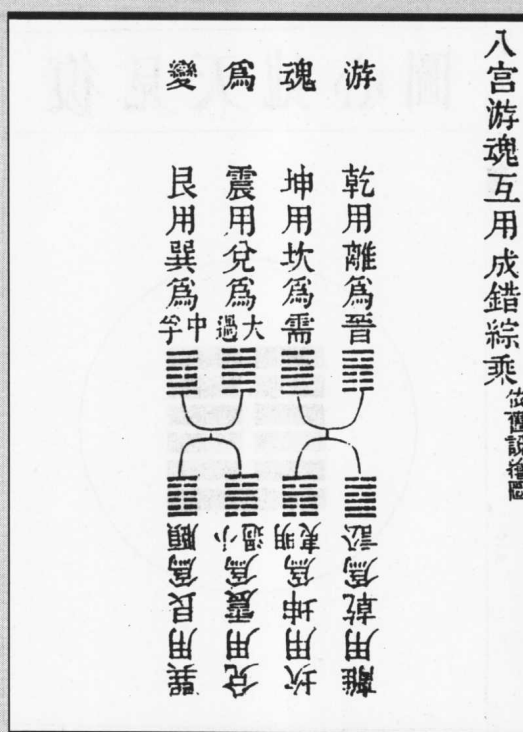 八宮游魂互用成錯綜乘 依舊說繪圖
游魂爲變
乾用離爲晉
坤用坎爲需
震用兌爲大過
艮用巽爲中孚
離用乾爲訟
坎用坤爲明夷
兌用震爲小過
巽用艮爲頤